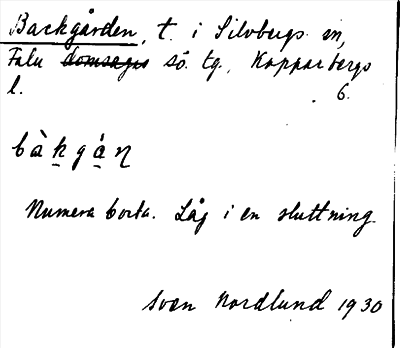 Backgården, t. i Silvbergs sn,
Falu domsagas sö. tg., Kopparbergs
l. 6.
bàkgáɳ
Numera borta. Låg i en sluttning.
Sven Nordlund 1930